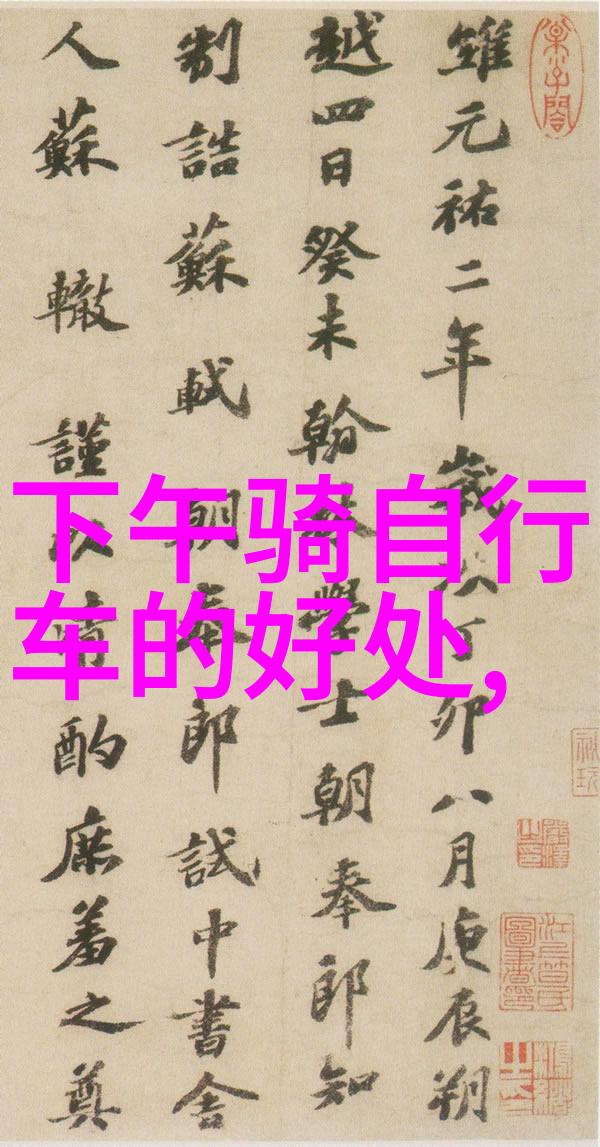 維元祐二年歲次丁卯八月庚辰朔
越四日癸未翰林學士朝奉郎知
制誥蘇軾朝奉郎試中書舍
人蘇轍謹以清酌庶羞之奠
下午骑自行
车的好处,